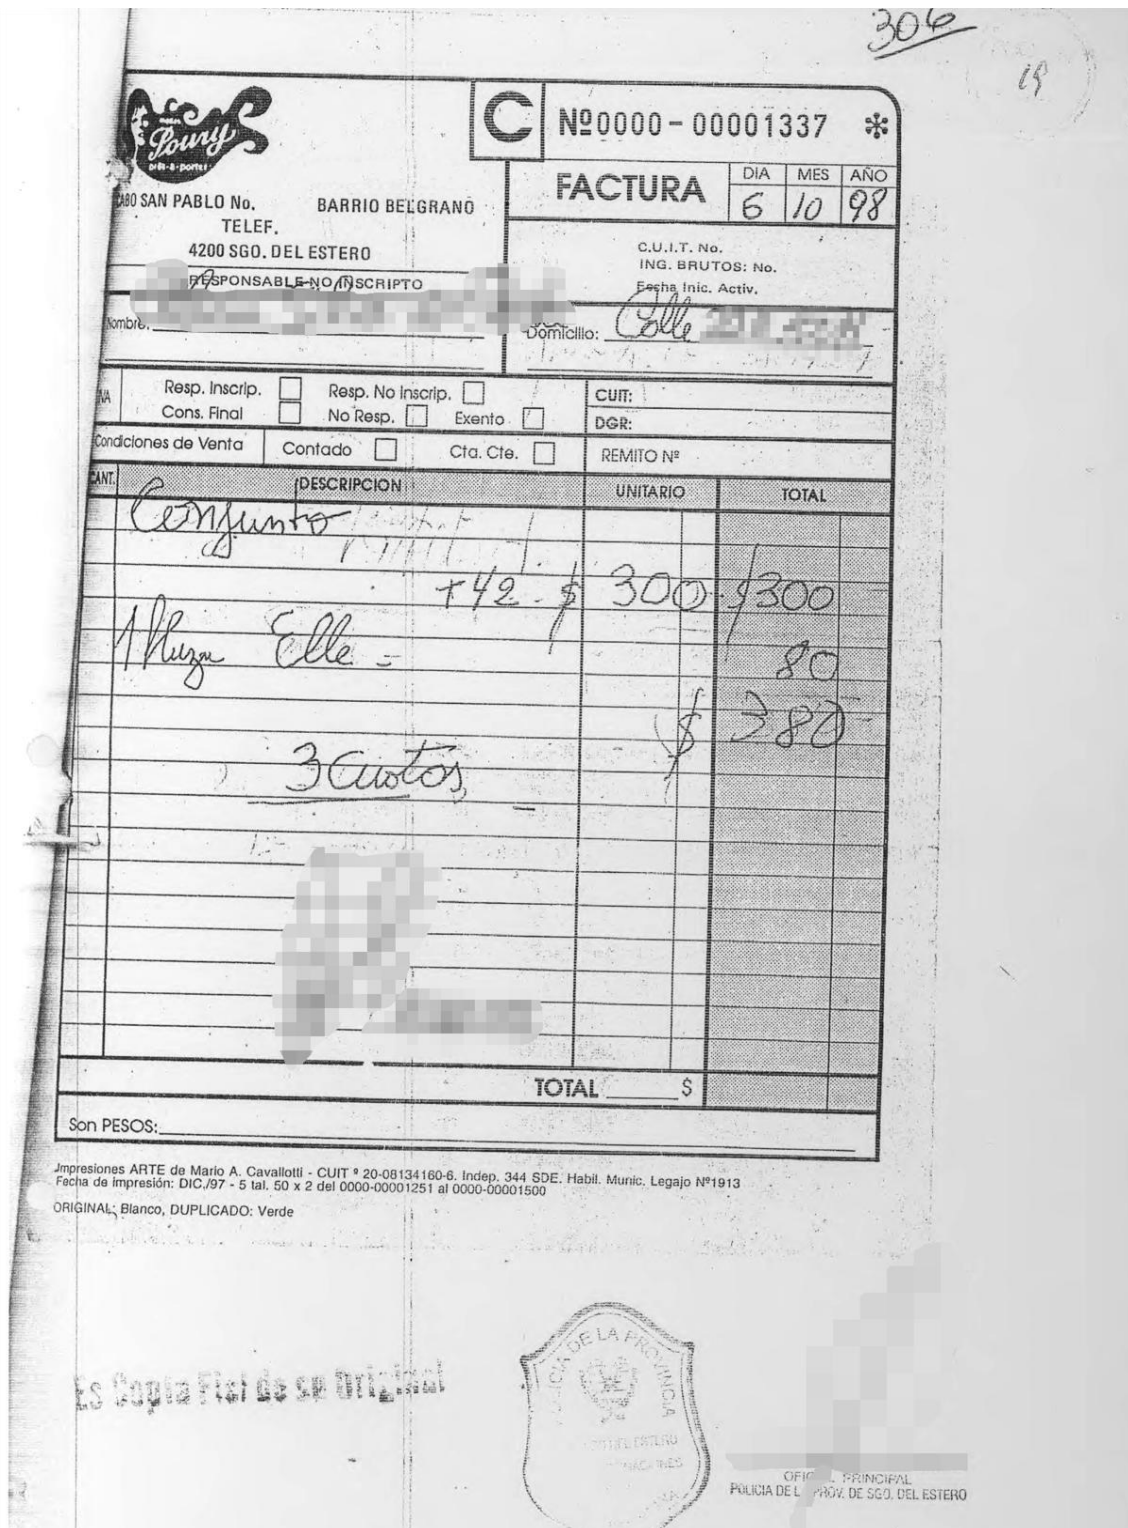 306
19
Loury
prêt-à-porter
C Nº0000-00001337 *
FACTURA
DIA MES AÑO
6 10 98
CABO SAN PABLO No. BARRIO BELGRANO
TELEF.
4200 SGO. DEL ESTERO
RESPONSABLE NO INSCRIPTO
C.U.I.T. No.
ING. BRUTOS: No.
Fecha Inic. Activ.
Nombre:
Domicilio: Calle
IVA Resp. Inscrip. Resp. No Inscrip. CUIT:
Cons. Final No Resp. Exento DGR:
Condiciones de Venta Contado Cta. Cte. REMITO Nº
CANT. DESCRIPCION UNITARIO TOTAL
Conjunto
+42 - $ 300 - $300
1 Elle = 80
$ 380
3 Cuotas
TOTAL $
Son PESOS:
Impresiones ARTE de Mario A. Cavallotti - CUIT º 20-08134160-6. Indep. 344 SDE. Habil. Munic. Legajo Nº1913
Fecha de impresión: DIC./97 - 5 tal. 50 x 2 del 0000-00001251 al 0000-00001500
ORIGINAL: Blanco, DUPLICADO: Verde
Es Copia Fiel de su Original
POLICIA DE LA PROVINCIA
OFICIAL PRINCIPAL
POLICIA DE LA PROV. DE SGO. DEL ESTERO